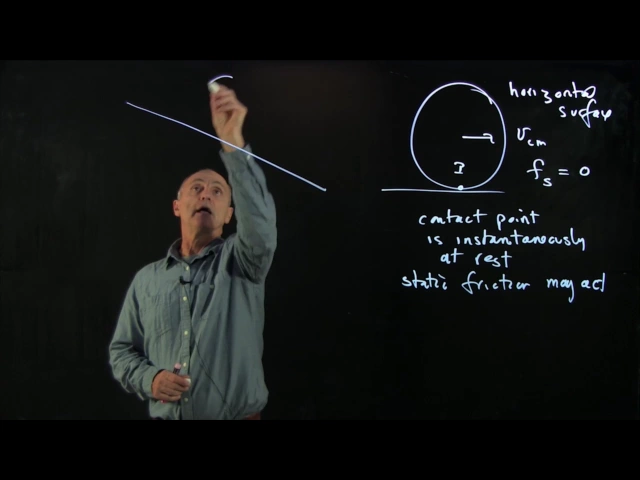 horizontal
surface
Vcm
fs = 0
contact point
is instantaneously
at rest
static friction may act